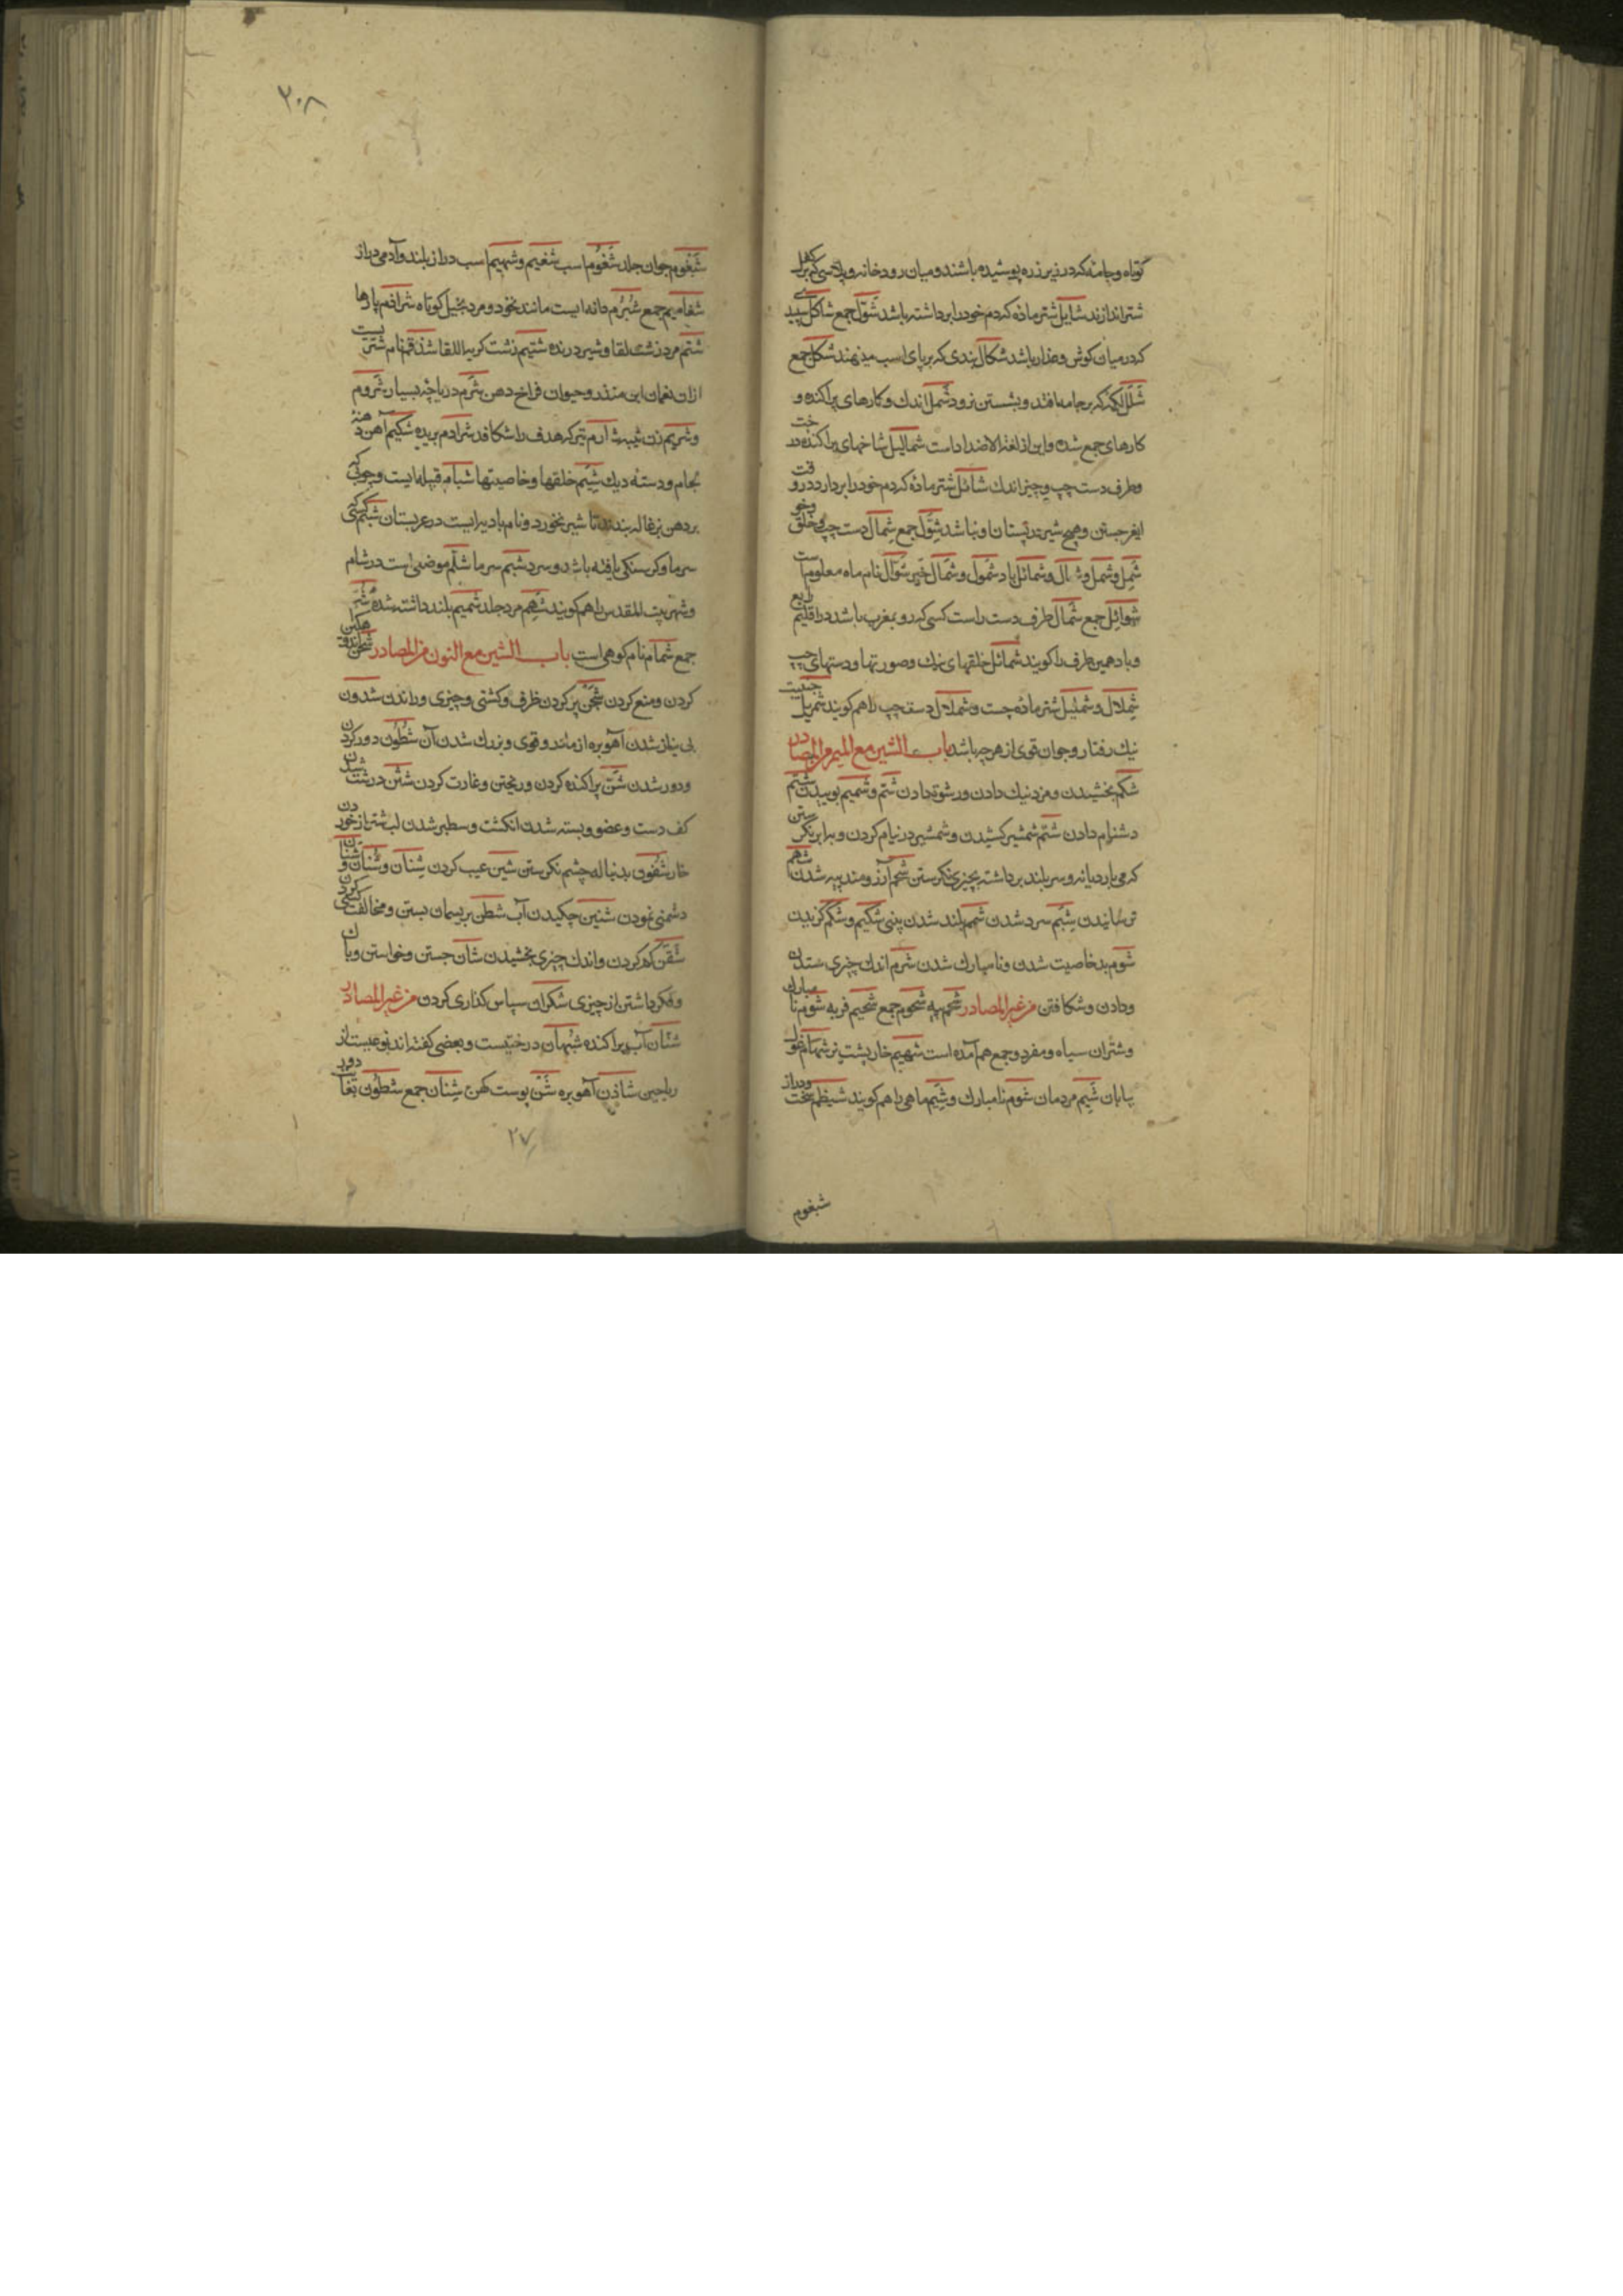 کوتاه و جامه که در زیر زره پوشیده باشند و میان رودخانه و پلاسی که بر کفل
شتر اندازند شایل شتر ماده که دم خود را برداشته باشد شُوَّل جمع شاکل سپیدی
که در میان کوش و عذار باشد شکال بندی که بر پای اسب می نهند شکل جمع
شَلَل لکه که بر جامه افتد و بشستن نرود شَمل اندك و کارهای پراکنده و
کارهای جمع شده و این از لغة الاضداد است شمالیل شاخهای پراکنده درخت
و طرف دست چپ و چیز اندك شائل شتر ماده که دم خود را بردارد در وقت
جستن و هیچ شیر در پستان او نباشد شُوَّل جمع شِمال دست چپ و خلق و خو
شَمِل و شمل و شمال و شمائل باد شمول و شمال خمر شوال نام ماه معلوم است
شوائل جمع شَمال طرف دست راست کسی که رو بمغرب باشد در اقلیم رابع
و باد همین طرف را کویند شمائل خلقهای نیك و صورتها و دستهای چپ
شِملال و شملیل شتر ماده چست و شملال دست چپ را هم کویند شمریل
نیك رفتار و جوان قوی از هر چه باشد باب الشین مع المیم من المصادر
شکم بخشیدن و مزد نیك دادن و رشوة دادن شم و شمیم بوییدن شتم
دشنام دادن شیم شمشیر کشیدن و شمشیر در نیام کردن و برابر نکرستن
که می بارد یا نه و سر بلند برداشته بچیزی نکرستن شحم آرزومند پیه شدن شهم
ترسانیدن شَبَم سرد شدن شمم بلند شدن بینی شکیم و شکم کزیدن
شوم بد خاصیت شدن و نامبارك شدن شرم اندك چیزی ستدن
و دادن و شکافتن من غیر المصادر شحم پیه شحوم جمع شحیم فربه شوم نامبارك
و شتران سیاه و مفرد و جمع هم آمده است شهیم خارپشت نر شهام غول
بیابان شیم مردمان شوم نامبارك و شِیَم ماهی را هم کویند شیظم سخت و دراز
شبغوم
٢٠٨
شَبغوم جوان جلد شغموم اسب شغیم و شهیم اسب دراز بلند و آدمی دراز
شغامیم جمع شُبرُم دانه ایست مانند نخود و مرد بخیل کوتاه شراذم پارها
شتم مرد زشت لقا و شیر درنده شتیم زشت کریه اللقا شذقم نام شتریست
از ان نعمان ابن منذر و حیوان فراخ دهن شَرم دریاچه بسیار شروم
و شریم زن ثیبه شارم تیر که هدف را شکافد شرادم بریده شکیم آهن دهنهٔ
لجام و دستهٔ دیك شِیَم خلقها و خاصیتها شبام قبیله ایست و چوبی که
بر دهن بزغاله بندند تا شیر نخورد و نام بادیه ایست در عربستان شبم کسی که
سرما و کرسنکی یافته باشد و سرد شبم سرما شلّم موضعی است در شام
و شهر بیت المقدس را هم کویند شهم مرد جلد شمیم بلند داشته شده شُم
جمع شمام نام کوهی است باب الشین مع النون من المصادر شحن اندوهکین
کردن و منع کردن شحن پر کردن ظرف و کشتی و چیزی و راندن شدون
بی نیاز شدن آهوبره از مادر و قوی و بزرك شدن آن شطون دور کردن
و دور شدن شن پراکنده کردن و ریختن و غارت کردن شثن درشت شدن
کف دست و عضو و بسته شدن انکشت و سطبر شدن لب شتر از خوردن
خار شفون بدنباله چشم نکرستن شین عیب کردن شِنان و شُنان و شنآن
دشمنی نمودن شنین چکیدن آب شطن بریسمان بستن و مخالفت کسی کردن
شقن کم کردن و اندك چیزی بخشیدن شأن جستن و خواستن و باك
و فکر داشتن از چیزی شکران سپاس کذاری کردن من غیر المصادر
شنان آب پراکنده شبهان درختیست و بعضی کفته اند نوعیست از
ریاحین شادن آهوبره شَنّ پوست کهن شِنان جمع شطون بغایت دور
٢٧